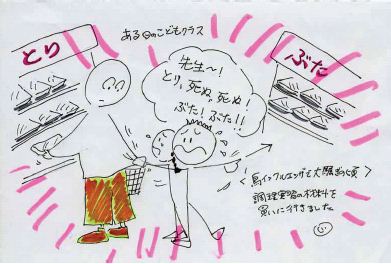 ある日のこどもクラス
とり
ぶた
先生〜!
とり、死ぬ、死ぬ!
ぶた!ぶた!!
鳥インフルエンザで大騒ぎの頃
調理実習の材料を
買いに行きました